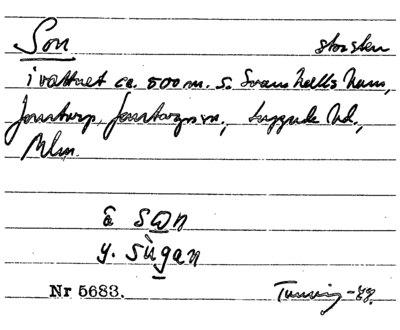 Son stor sten
i vattnet ca. 500 m. S. Svanhalls hamn,
Jonstorp, Jonstorps sn., Luggude hd.,
Mlm.
ä sɷn
y. sùgan
Nr 5683.